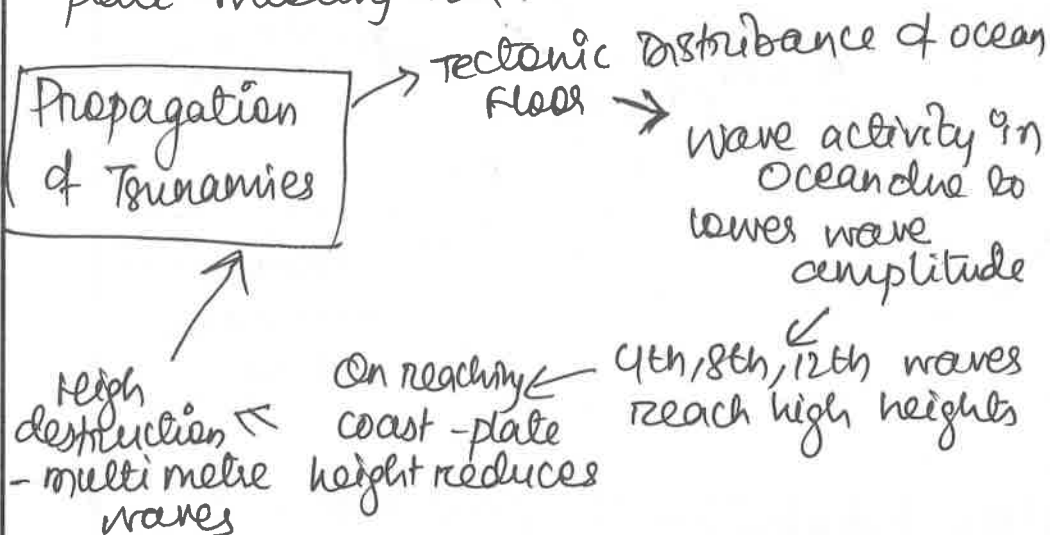 Propagation
of Tsunamies
Tectonic Distribance of ocean
Floor
wave activity in
Ocean due to
lower wave
amplitude
4th, 8th, 12th waves
reach high heights
On reaching
coast - plate
height reduces
High
destruction
- multi metre
waves